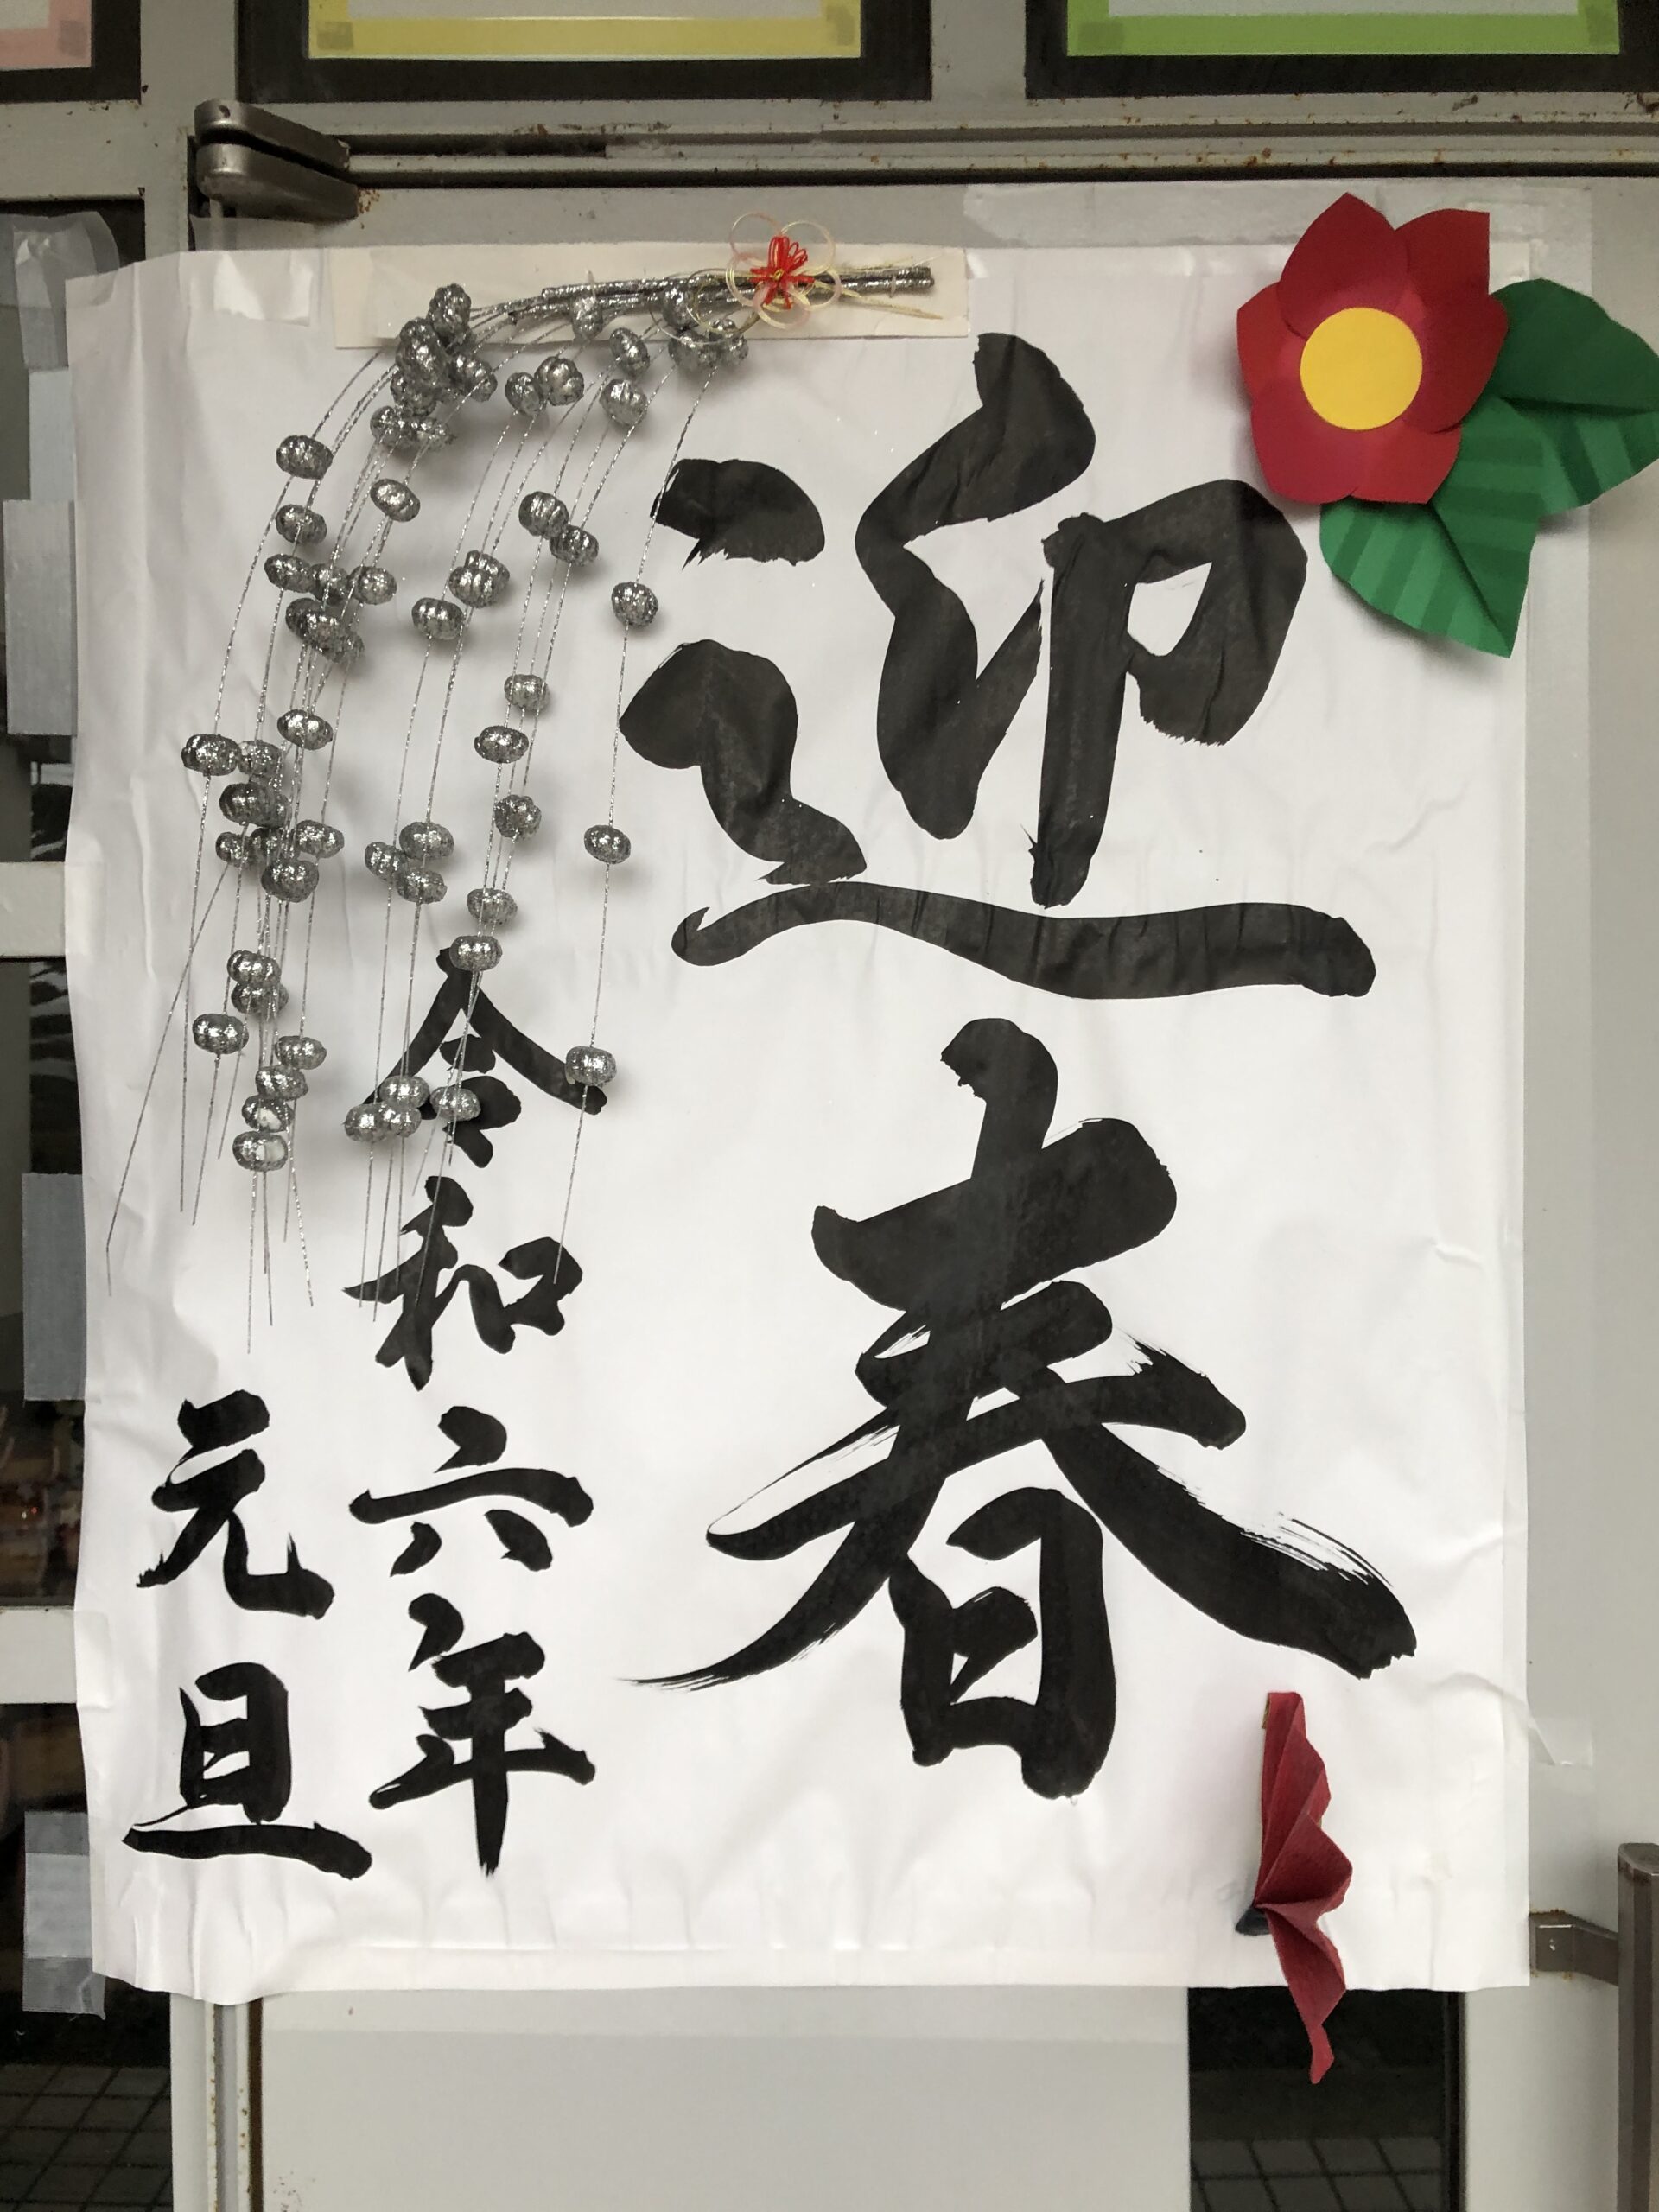 迎春
令和六年
元旦